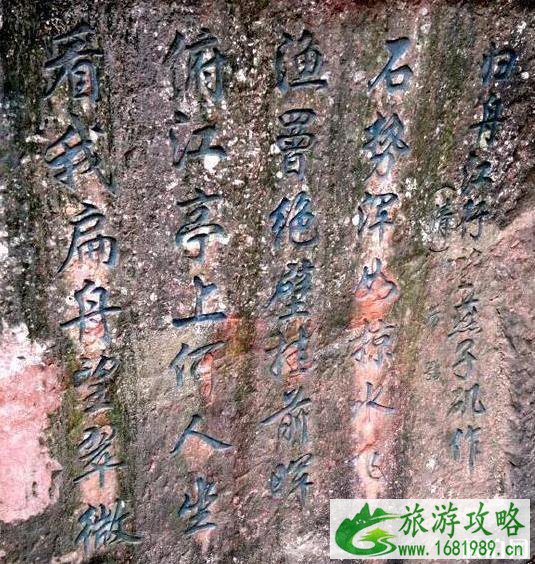 归舟江行燕子矶作
（清）
石势浑如掠水飞
渔罾绝壁挂前晖
俯江亭上何人坐
看我扁舟望翠微
旅游攻略
www.1681989.cn